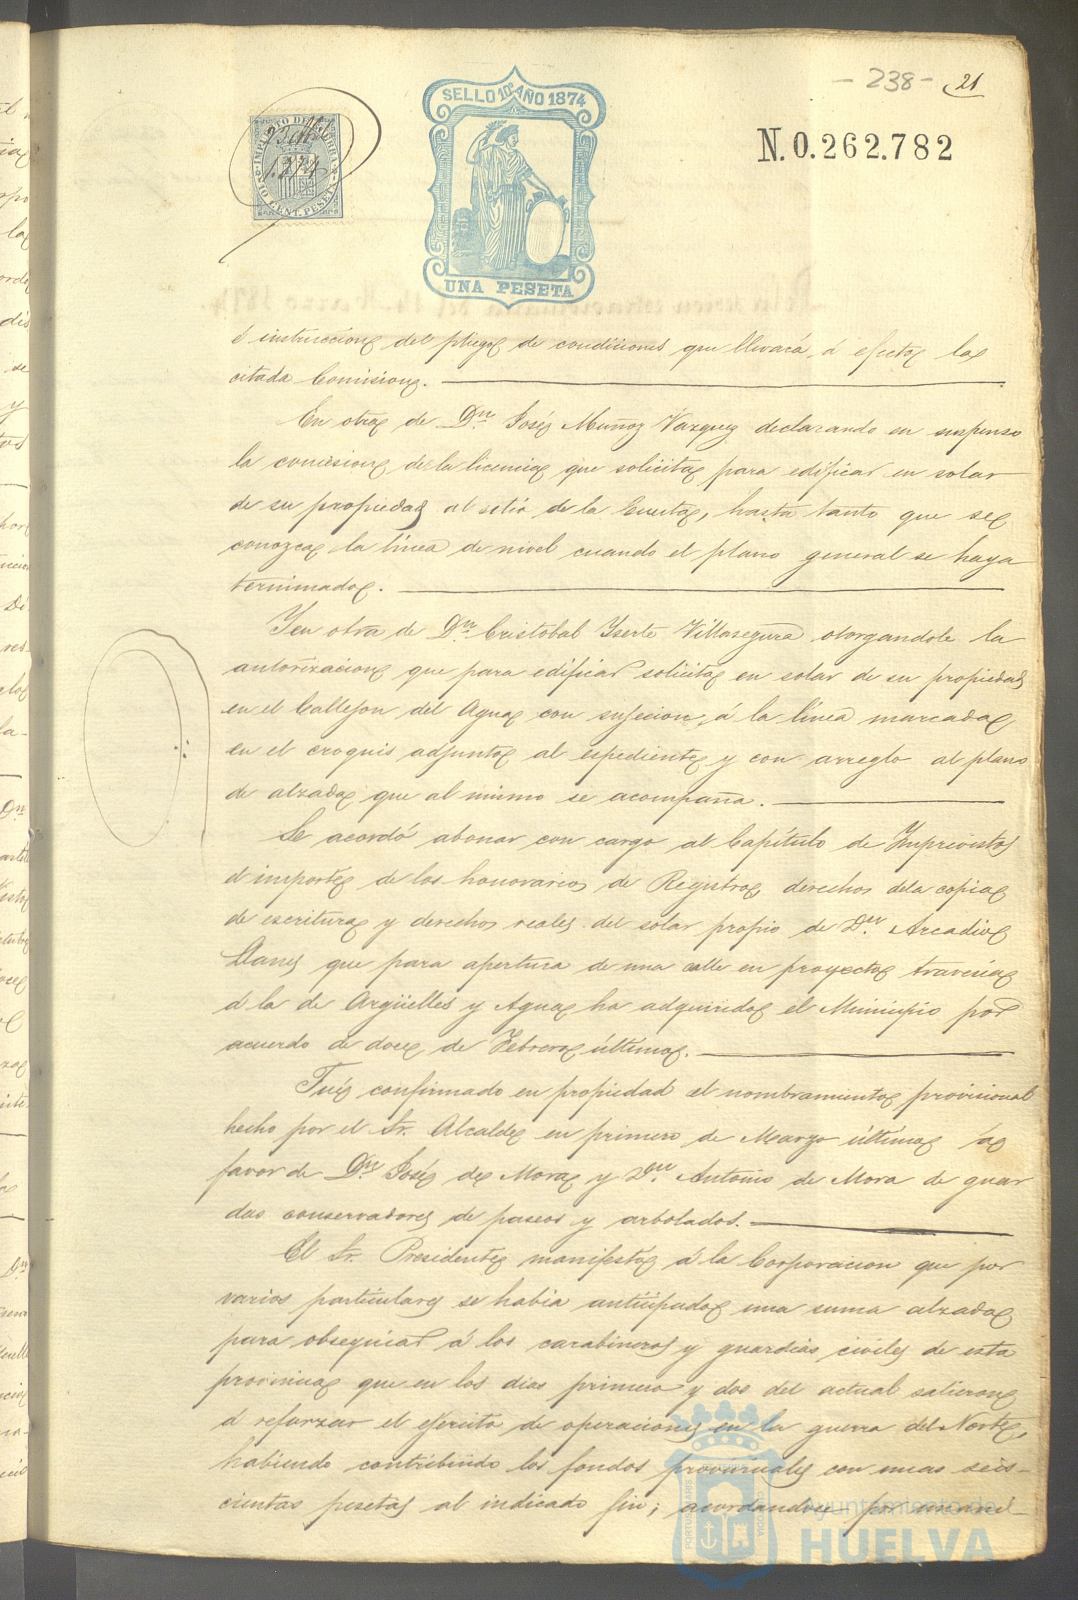 - 238 - 21
SELLO 10º AÑO 1874
N. 0.262.782
IMPUESTO DE GUERRA
10 CENT. PESETA
1.874
UNA PESETA
é instrucciones del pliego de condiciones que llevará á efecto la
citada Comision.
En otra de Dn. José Muñoz Vazquez declarando en suspenso
la concesion de la licencia que solicita para edificar en solar
de su propiedad al sitio de la Cuesta, hasta tanto que se
conozca la línea de nivel cuando el plano general se haya
terminado.
Y en otra de Dn. Cristobal Yserte Villasegura otorgandole la
autorizacion que para edificar solicita en solar de su propiedad
en el Callejon del Agua con sujecion á la línea marcada
en el croquis adjunto al espediente y con arreglo al plano
de alzada que al mismo se acompaña.
Se acordó abonar con cargo al Capítulo de Imprevistos
el importe de los honorarios de Registro, derechos dela copia
de escritura y derechos reales del solar propio de Dn. Arcadio
Llanes que para apertura de una calle en proyecto travesia
á la de Argüelles y Agua ha adquirido el Municipio por
acuerdo de doce de Febrero último.
Fué confirmado en propiedad el nombramiento provisional
hecho por el Sr. Alcalde en primero de Marzo último á
favor de Dn. José de Mora y Dn. Antonio de Mora de guar
das conservadores de paseos y arbolados.
El Sr. Presidente manifestó á la Corporacion que por
varios particulares se habia anticipado una suma alzada
para obsequiar á los carabineros y guardias civiles de esta
provincia que en los dias primero y dos del actual salieron
á reforzar el ejército de operaciones en la guerra del Norte,
habiendo contribuido los fondos provinciales con unas seis-
cientas pesetas al indicado fin; acordandose por unani-
Ayuntamiento de
HUELVA